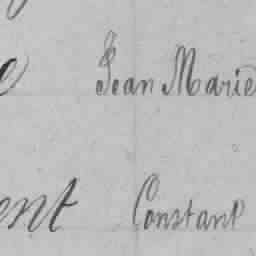 e Jean Marie
ent Constant